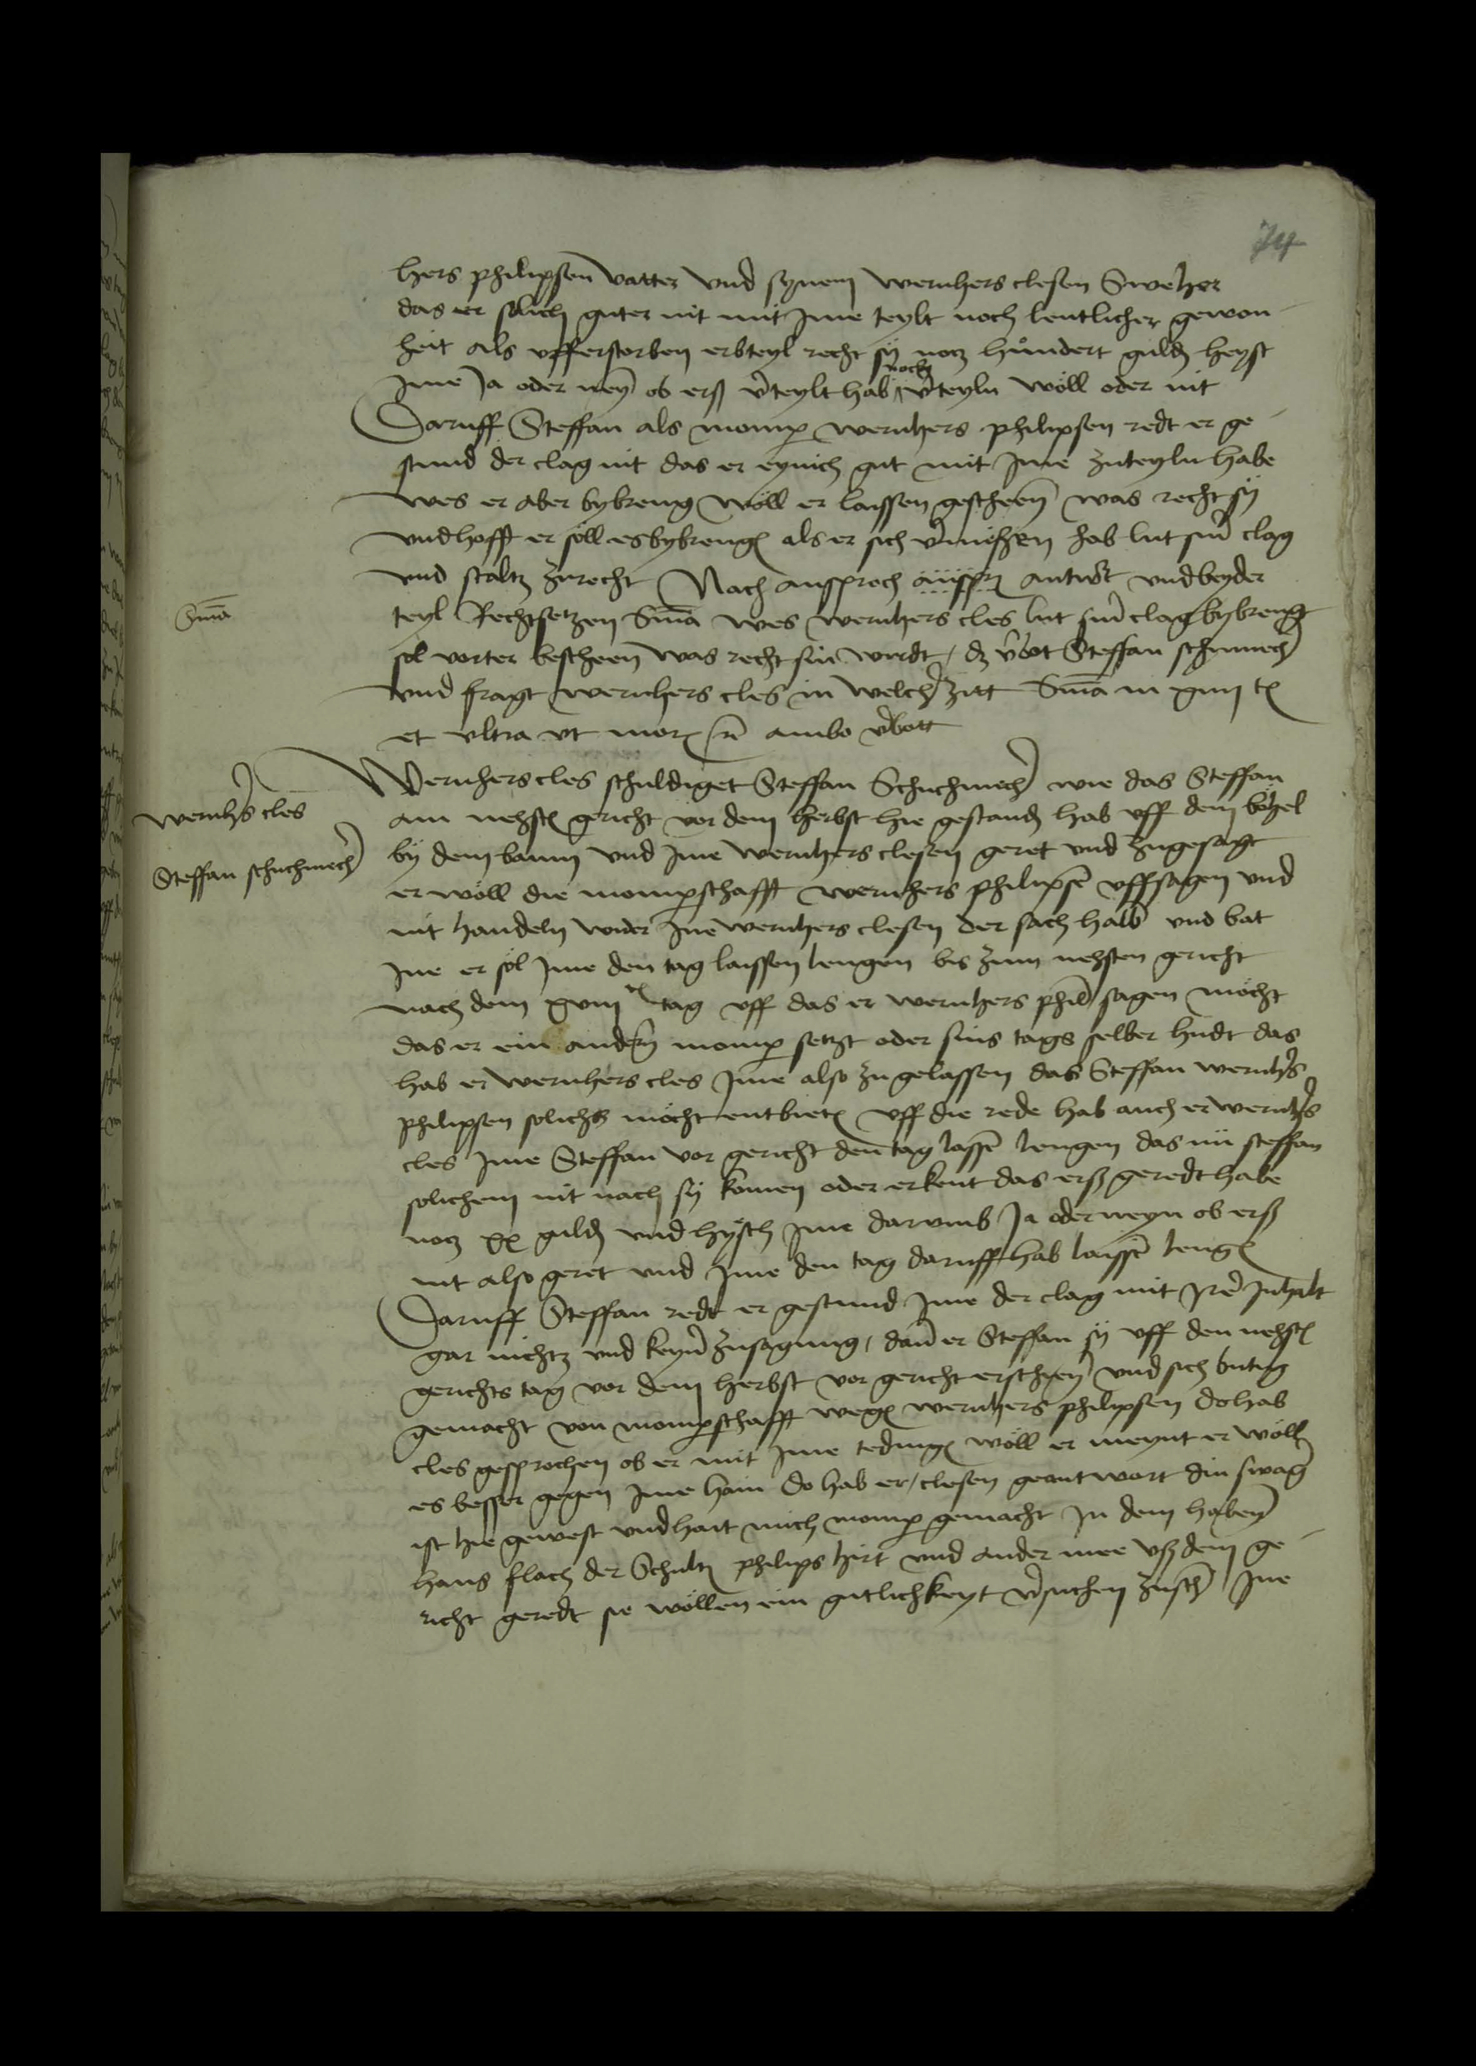 74
hers philipsen vatter und synem wernhers clesen Sweher
das er solich guter nit mit ime teylt noch lentlicher gewon
heit als ufferstorben erbteyl recht sy notz hůndert guld heyst
ime Ja oder neyn ob erß verteylt hab noch verteyln wöll oder nit
Daruff Steffan als momp wernhers philipsen redt er ge
stund der clag nit das er eynich gut mit ime zuteyln habe
wes er aber bybreng wöll er laissen gescheen was recht sy
und hofft er söll es bybrengen als er sich vermeßen hab lut sinr clag
und staltz zurecht Nach ansproch anspr antwort und beyder
Sma
teyl Rechtsetzen Sma wes wernhers cles lut sinr clag bybrengt
sol vorter bescheen was recht sin wirdt / dz verbot Steffan schumecher
und fragt wernhers cles in welcher zitt Sma in xiiii tagen
et ultra ut moris est ambo verbott
wernhers cles
Steffan schuchmecher
Wernhers cles schuldiget Steffan Schuchmecher wie das Steffan
am nehsten gericht vor dem herbst hie gestanden hab uff dem böhel
by dem baum und ime wernhers clesen geret und zugesagt
er wöll die mompschafft wernhers philipsen uffsagen und
nit handeln wider ine wernhers clesen der sach halb und bat
ine er söl ime den tag laissen lengen bis zum nehsten gericht
nach dem xviii ten tag uff das er wernhers phil sagen möcht
das er ein andern momp setzt oder sins tags selber hudt das
hab er wernhers cles ime also zu gelassen das Steffan wernhers
philipsen solichs möcht entbieten uff die rede hab auch er wernhers
cles ime Steffan vor gericht den tag lassen lengen das nu steffan
solichem nit nach sy komen oder erkent das erß geredt habe
notz xx guld und hysch ime darumb Ja oder neyn ob erß
nit also geret und ime den tag daruff hab laissen lengen
Daruff Steffan redt er gestund ime der clag mit irem Inhalt
gar nichtz und keynr zusagung / dan er Steffan sy uff den nehsten
gerichts tag vor dem herbst vor gericht erschynen und sich butig
gemacht von mompschafft wegen wernhers philipsen do hab
cles gesprochen ob er mit ime tedingen wöll er meynt er wöll
es besser gegen ime hain do hab er / clesen geantwort din swager
ist hie gewest und hait mich momp gemacht In dem haben
hans flach der Schultes philips hirt und ander mee uß dem ge
richt geredt sie wöllen ein gutlichkeyt versuchen zuschen ine